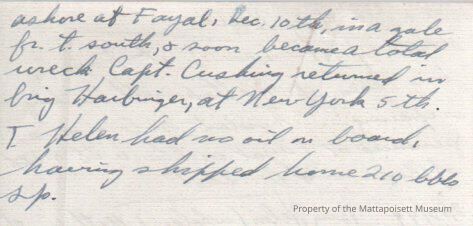 ashore at Fayal, Dec. 10th, in a gale
fr. t. south, & soon became a total
wreck Capt. Cushing returned in
brig Harbinger, at New York 5th.
T Helen had no oil on board,
having shipped home 210 bbls
sp.
Property of the Mattapoisett Museum